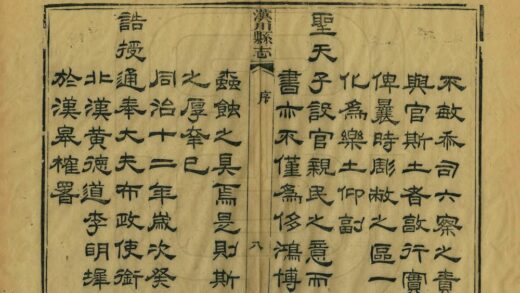 不敏忝司六察之責
與官斯土者敦行實
俾曩時彫敝之區一
化為樂土仰副
聖天子設官親民之意而
書亦不僅為侈鴻博
漢川縣志
序
八
蠹蝕之具焉是則斯
之厚幸已
同治十二年歲次癸
誥授通奉大夫布政使銜
北漢黃德道李明墀
於漢皋榷署